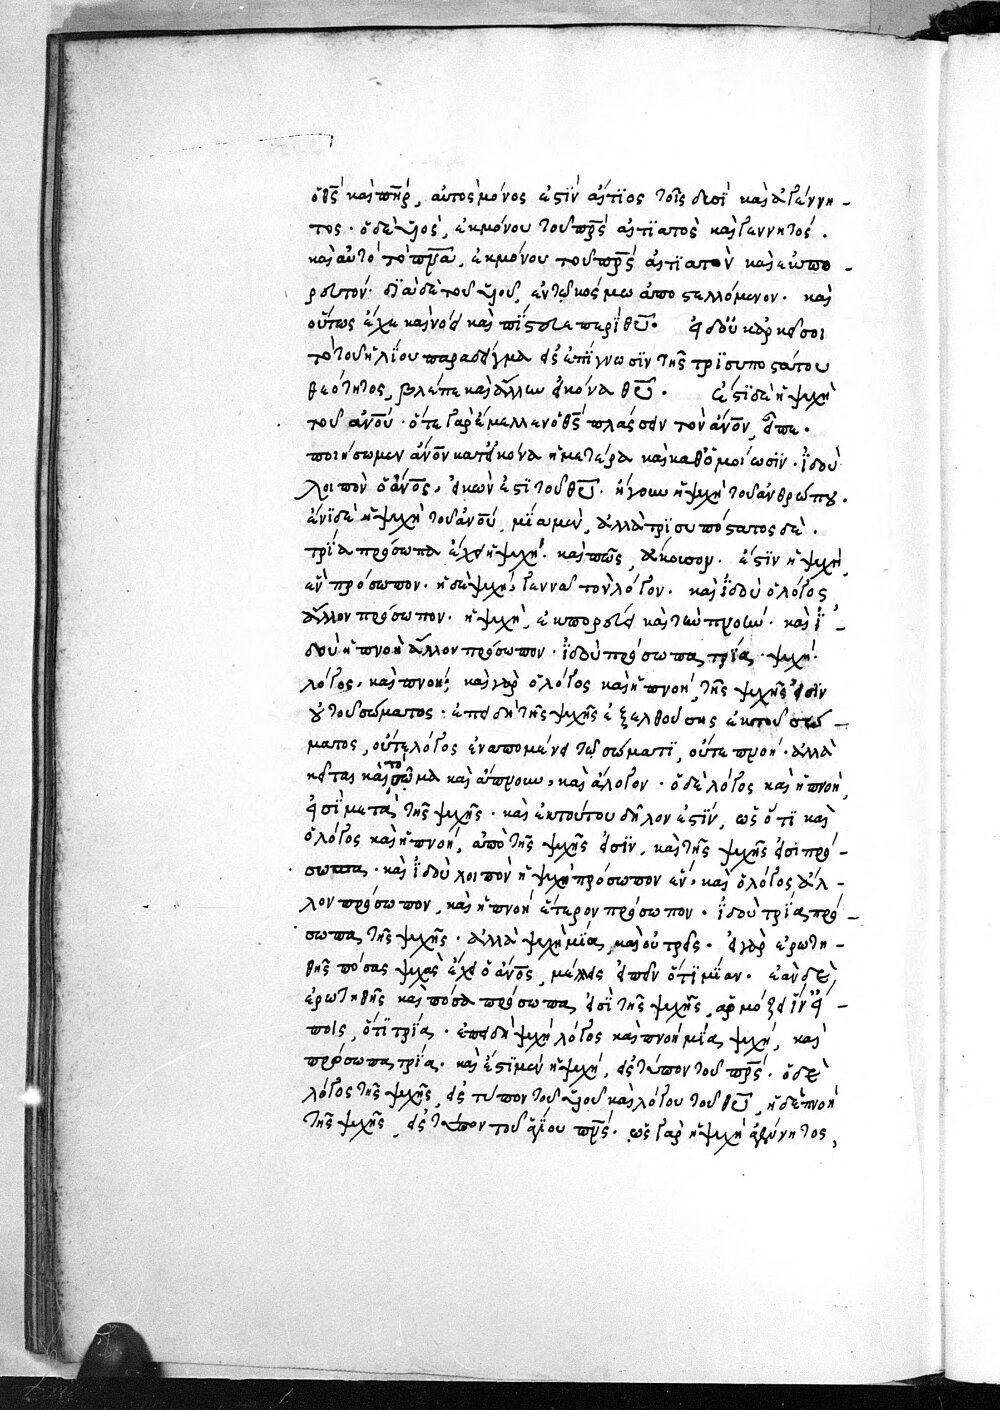 ὁ θς̄ καὶ πη̄ρ, αὐτὸς μόνος ἐστὶν ἀίτϊος τοῖς δυσὶ καὶ ἀγέννη -
τος · ὁ δὲ υἱὸς, ἐκ μόνου τοῦ πρς̄ ἀιτϊατὸς καὶ γεννητός ·
καὶ αὐτὸ τὸ πνᾱ, ἐκ μόνου τοῦ πρς̄ ἀιτϊατὸν καὶ ἐκπο -
ρευτόν · δϊὰ δὲ τοῦ υἱοῦ, ἐν τῷ κόσμω ἀποστελλόμενον · καὶ
οὕτως ἔχε καὶ νόει καὶ πίστευε περὶ θῡ · εἰ δ' οὐκ ἀρκεῖ σοι
τὸ τοῦ ἡλίου παράδειγμα εἰς ἐπίγνωσϊν τῆς τρϊσυποστάτου
θεότητος, βλέπε καὶ ἄλλην εἰκόνα θῡ · ἔστϊ δὲ ἡ ψυχὴ
τοῦ ἀνο̄υ · ὅτε γὰρ ἔμελλεν ὁ θς̄ πλάσειν τὸν ἄνο̄ν, εἶπε ·
ποιήσωμεν ἄνο̄ν κατ' εἰκόνα ἡμετέρα καὶ καθ' ὁμοίωσϊν · ἰδοὺ
λοιπὸν ὁ ἄνο̄ς, εἰκών ἐστϊ τοῦ θῡ · ἤγουν ἡ ψυχὴ τοῦ ἀνθρώπου ·
ἔνϊ δὲ ἡ ψυχὴ τοῦ ἀνο̄υ, μία μὲν, ἀλλὰ τρϊσυπόστατος δὲ ·
τρία πρόσωπα ἔχει ἡ ψυχή · καὶ πῶς, ἄκουσον · ἔστϊν ἡ ψυχὴ,
ἓν πρόσωπον · ἡ δὲ ψυχὴ, γεννᾶ τὸν λόγον · καὶ ἰδοὺ ὁ λόγος
ἄλλον πρόσωπον · ἡ ψυχὴ, ἐκπορεύει καὶ τὴν πνοήν · καὶ ἰ -
δοὺ ἡ πνοὴ ἄλλον πρόσωπον · ἰδοὺ πρόσωπα τρία · ψυχή ·
λόγος, καὶ πνοή, καὶ γὰρ ὁ λόγος καὶ ἡ πνοή, τῆς ψυχῆς εἰσὶν
οὐ τοῦ σώματος · ἐπειδὴ τῆς ψυχῆς ἐξελθούσης ἐκ τοῦ σώ -
ματος, οὔτε λόγος ἐναπομένει τῷ σώματϊ, οὔτε πνοή · ἀλλὰ
κεῖται καὶ τὸ σῶμα καὶ ἄπνουν, καὶ ἄλογον · ὁ δὲ λόγος καὶ ἡ πνοὴ,
εἰσὶ μετὰ τῆς ψυχῆς · καὶ ἐκ τούτου δῆλον ἐστϊν, ὡς ὅτϊ καὶ
ὁ λόγος καὶ ἡ πνοή, ἀπὸ τῆς ψυχῆς εἰσὶν, καὶ τῆς ψυχῆς εἰσὶ πρό -
σωπα · καὶ ἰδοὺ λοιπὸν ἡ ψυχὴ πρόσωπον ἕν, καὶ ὁ λόγος ἄλ -
λον πρόσωπον, καὶ ἡ πνοὴ ἕτερον πρόσωπον · ἰδοὺ τρία πρό -
σωπα τῆς ψυχῆς · ἀλλὰ ψυχὴ μία, καὶ οὐ τρεῖς · εἰ γὰρ ἐρωτη -
θῆς πόσας ψυχὰς ἔχει ὁ ἄνο̄ς, μέλλεις εἰπεῖν ὅτι μίαν · ἐὰν δὲ
ἐρωτηθῆς καὶ πόσα πρόσωπα εἰσὶ τῆς ψυχῆς, ἁρμόζει ἵν' εἴ -
ποις, ὅτϊ τρία · ἐπειδὴ ψυχὴ λόγος καὶ πνοὴ μία ψυχὴ, καὶ
πρόσωπα τρία · καὶ ἔστϊ μὲν ἡ ψυχὴ, εἰς τύπον τοῦ πρς̄ · ὁ δὲ
λόγος τῆς ψυχῆς, εἰς τύπον τοῦ υἱοῦ καὶ λόγου τοῦ θῡ, ἡ δὲ πνοὴ
τῆς ψυχῆς, εἰς τύπον τοῦ ἁγίου πνς̄ · ὡς γὰρ ἡ ψυχὴ ἀγέννητος,